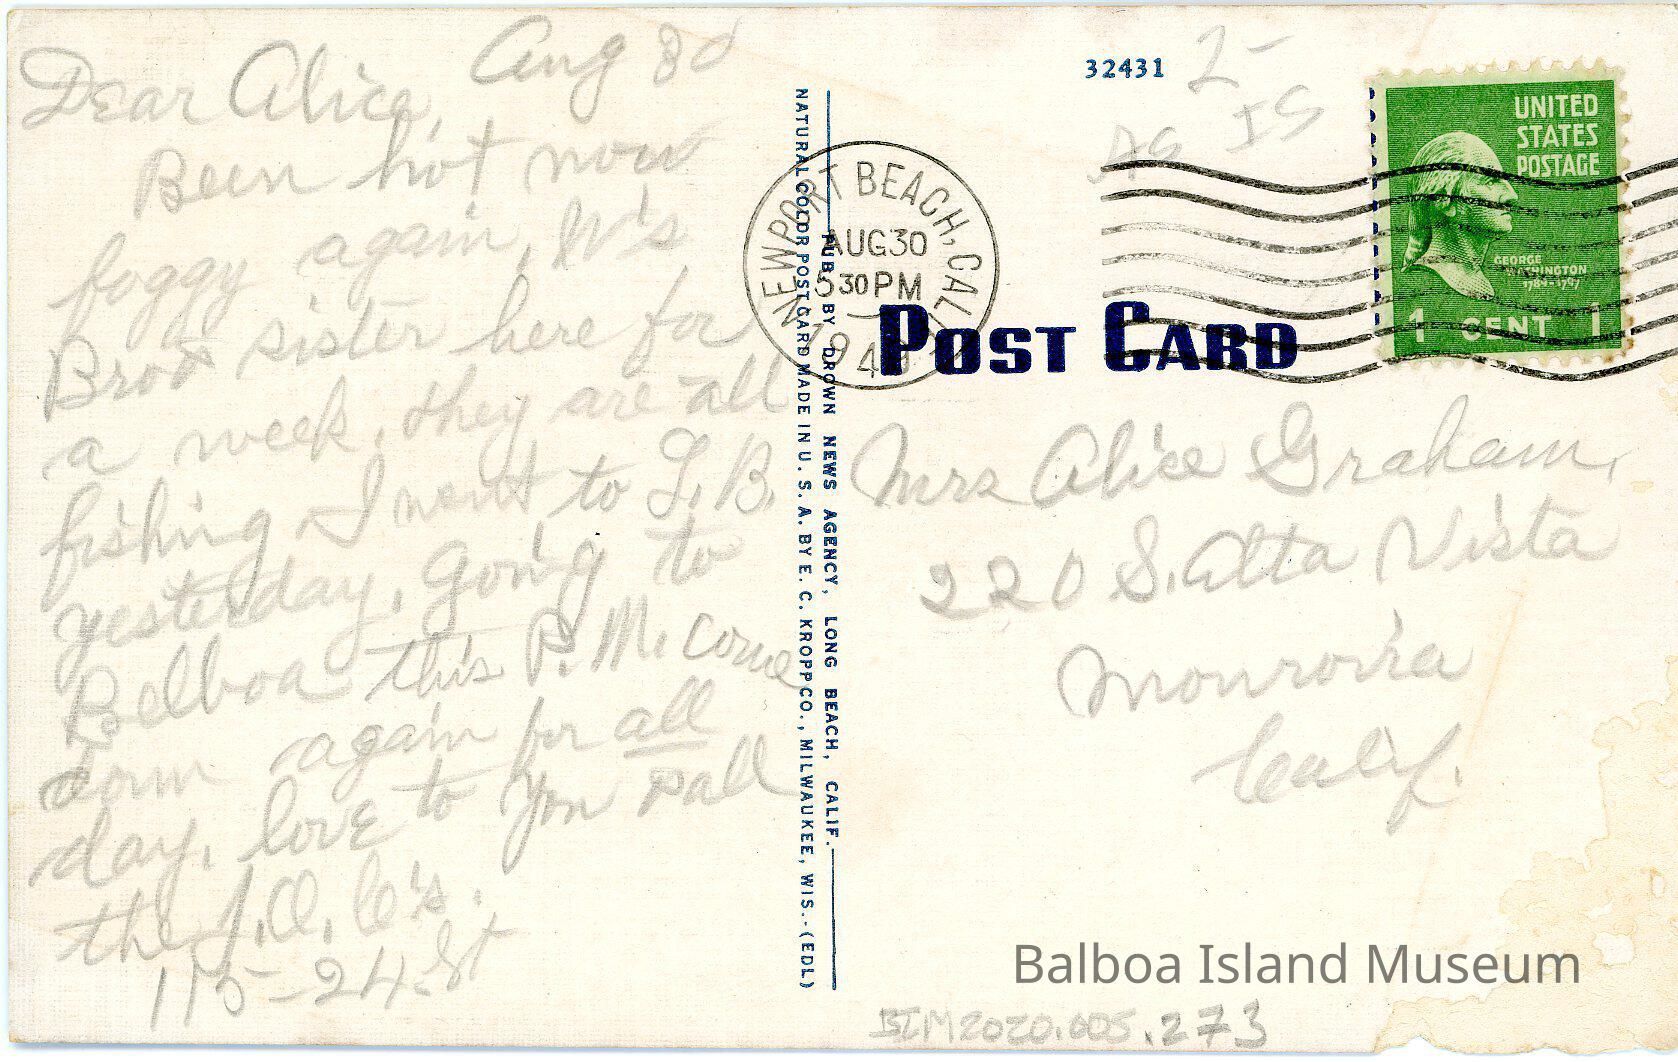 Aug 30
Dear Alice,
Been hot now
foggy again, W's
Bro & sister here for
a week, they are all
fishing I went to L.B.
yesterday, going to
Belboa this P.M. come
down again for all
day, love to you & all
the
115-24.St
NATURAL COLOR POST CARD MADE IN U. S. A. BY E. C. KROPP CO., MILWAUKEE, WIS.-(EDL)
PUB. BY DROWN NEWS AGENCY, LONG BEACH, CALIF.
32431
2-
IS
NEWPORT BEACH, CALIF.
AUG 30
5 30 PM
POST CARD
UNITED
STATES
POSTAGE
GEORGE
WASHINGTON
1789-1797
1 CENT 1
Mrs Alice Graham,
220 S. Alta Vista
Monrovia
Calif.
Balboa Island Museum
BIM2020.005.273